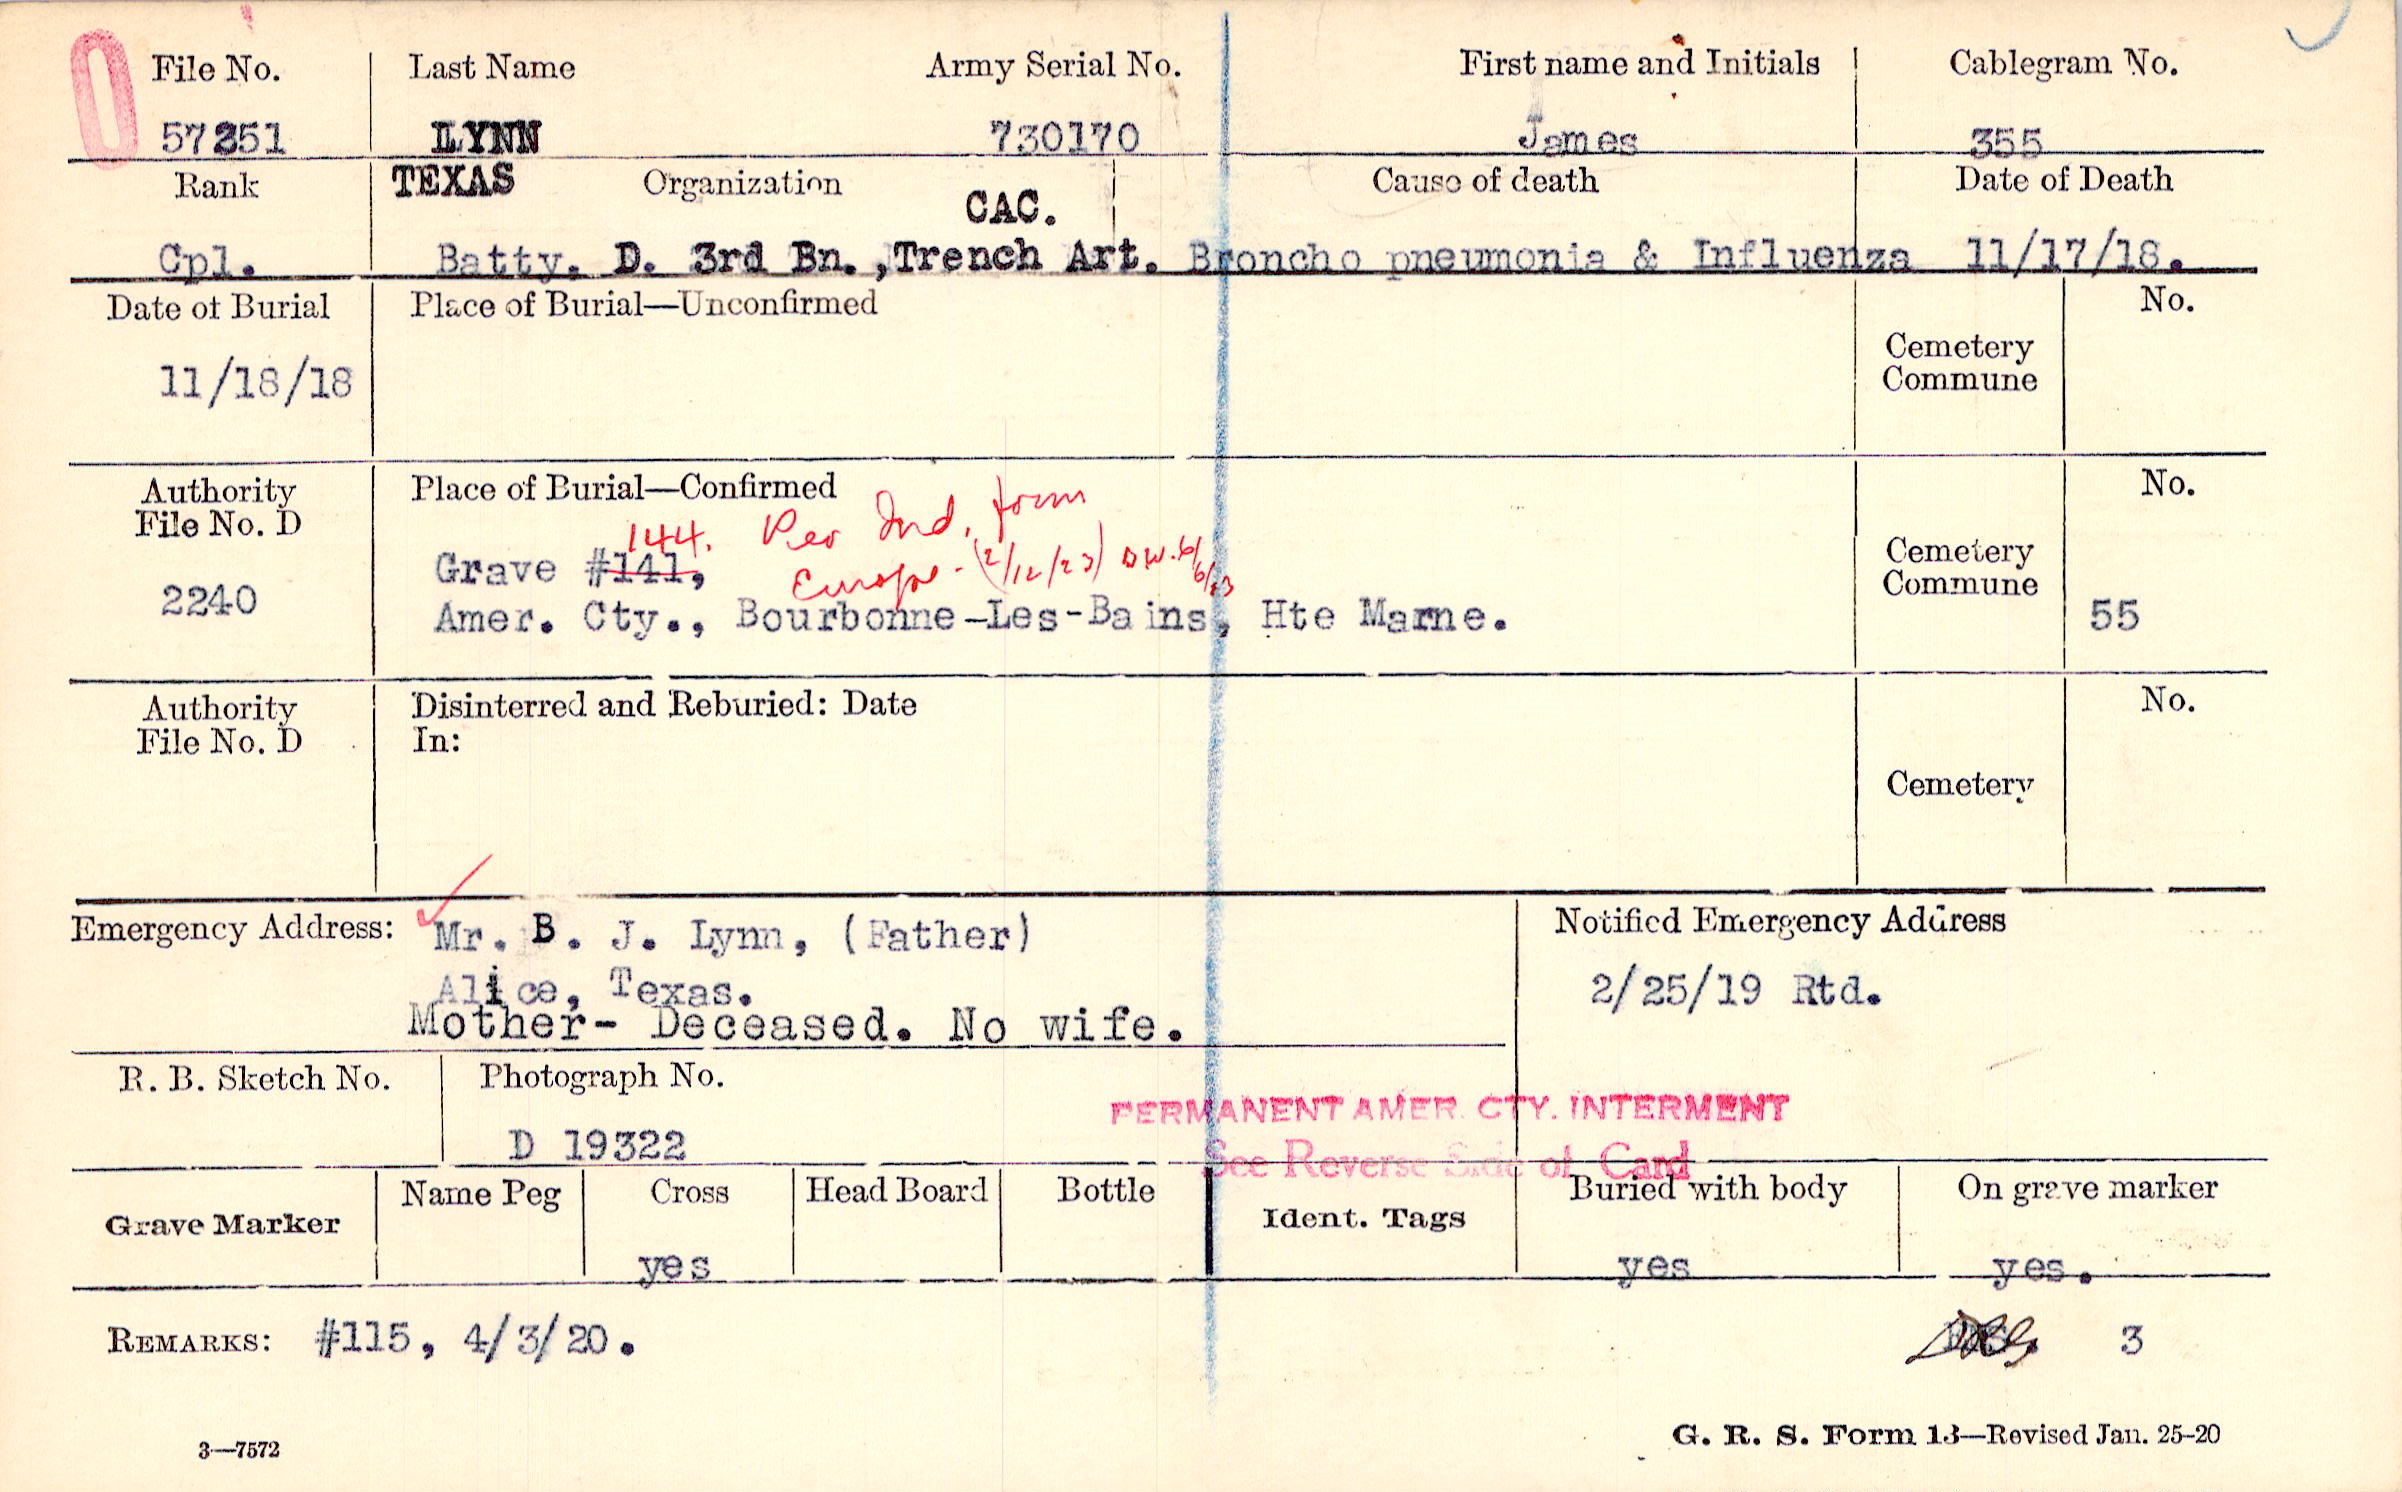 File No. Last Name Army Serial No. First name and Initials Cablegram No.
57251 LYNN 730170 James 355
Rank TEXAS Organization Cause of death Date of Death
CAC.
Cpl. Batty. D. 3rd Bn.,Trench Art. Broncho pneumonia & Influenza 11/17/18.
Date of Burial Place of Burial—Unconfirmed No.
Cemetery
Commune
11/18/18
Authority Place of Burial—Confirmed No.
File No. D
144. Per Ind. form
Grave #141, Europe - (2/12/23)
Cemetery
Commune
2240 Amer. Cty., Bourbonne-Les-Bains, Hte Marne. 55
Authority Disinterred and Reburied: Date No.
File No. D In:
Cemetery
Emergency Address: Mr. B. J. Lynn, (Father) Notified Emergency Address
Alice, Texas. 2/25/19 Rtd.
Mother- Deceased. No wife.
R. B. Sketch No. Photograph No.
PERMANENT AMER. CTY. INTERMENT
D 19322
See Reverse Side of Card
Grave Marker Name Peg Cross Head Board Bottle Ident. Tags Buried with body On grave marker
yes yes yes.
REMARKS: #115, 4/3/20. 3
3—7572 G. R. S. Form 13—Revised Jan. 25-20